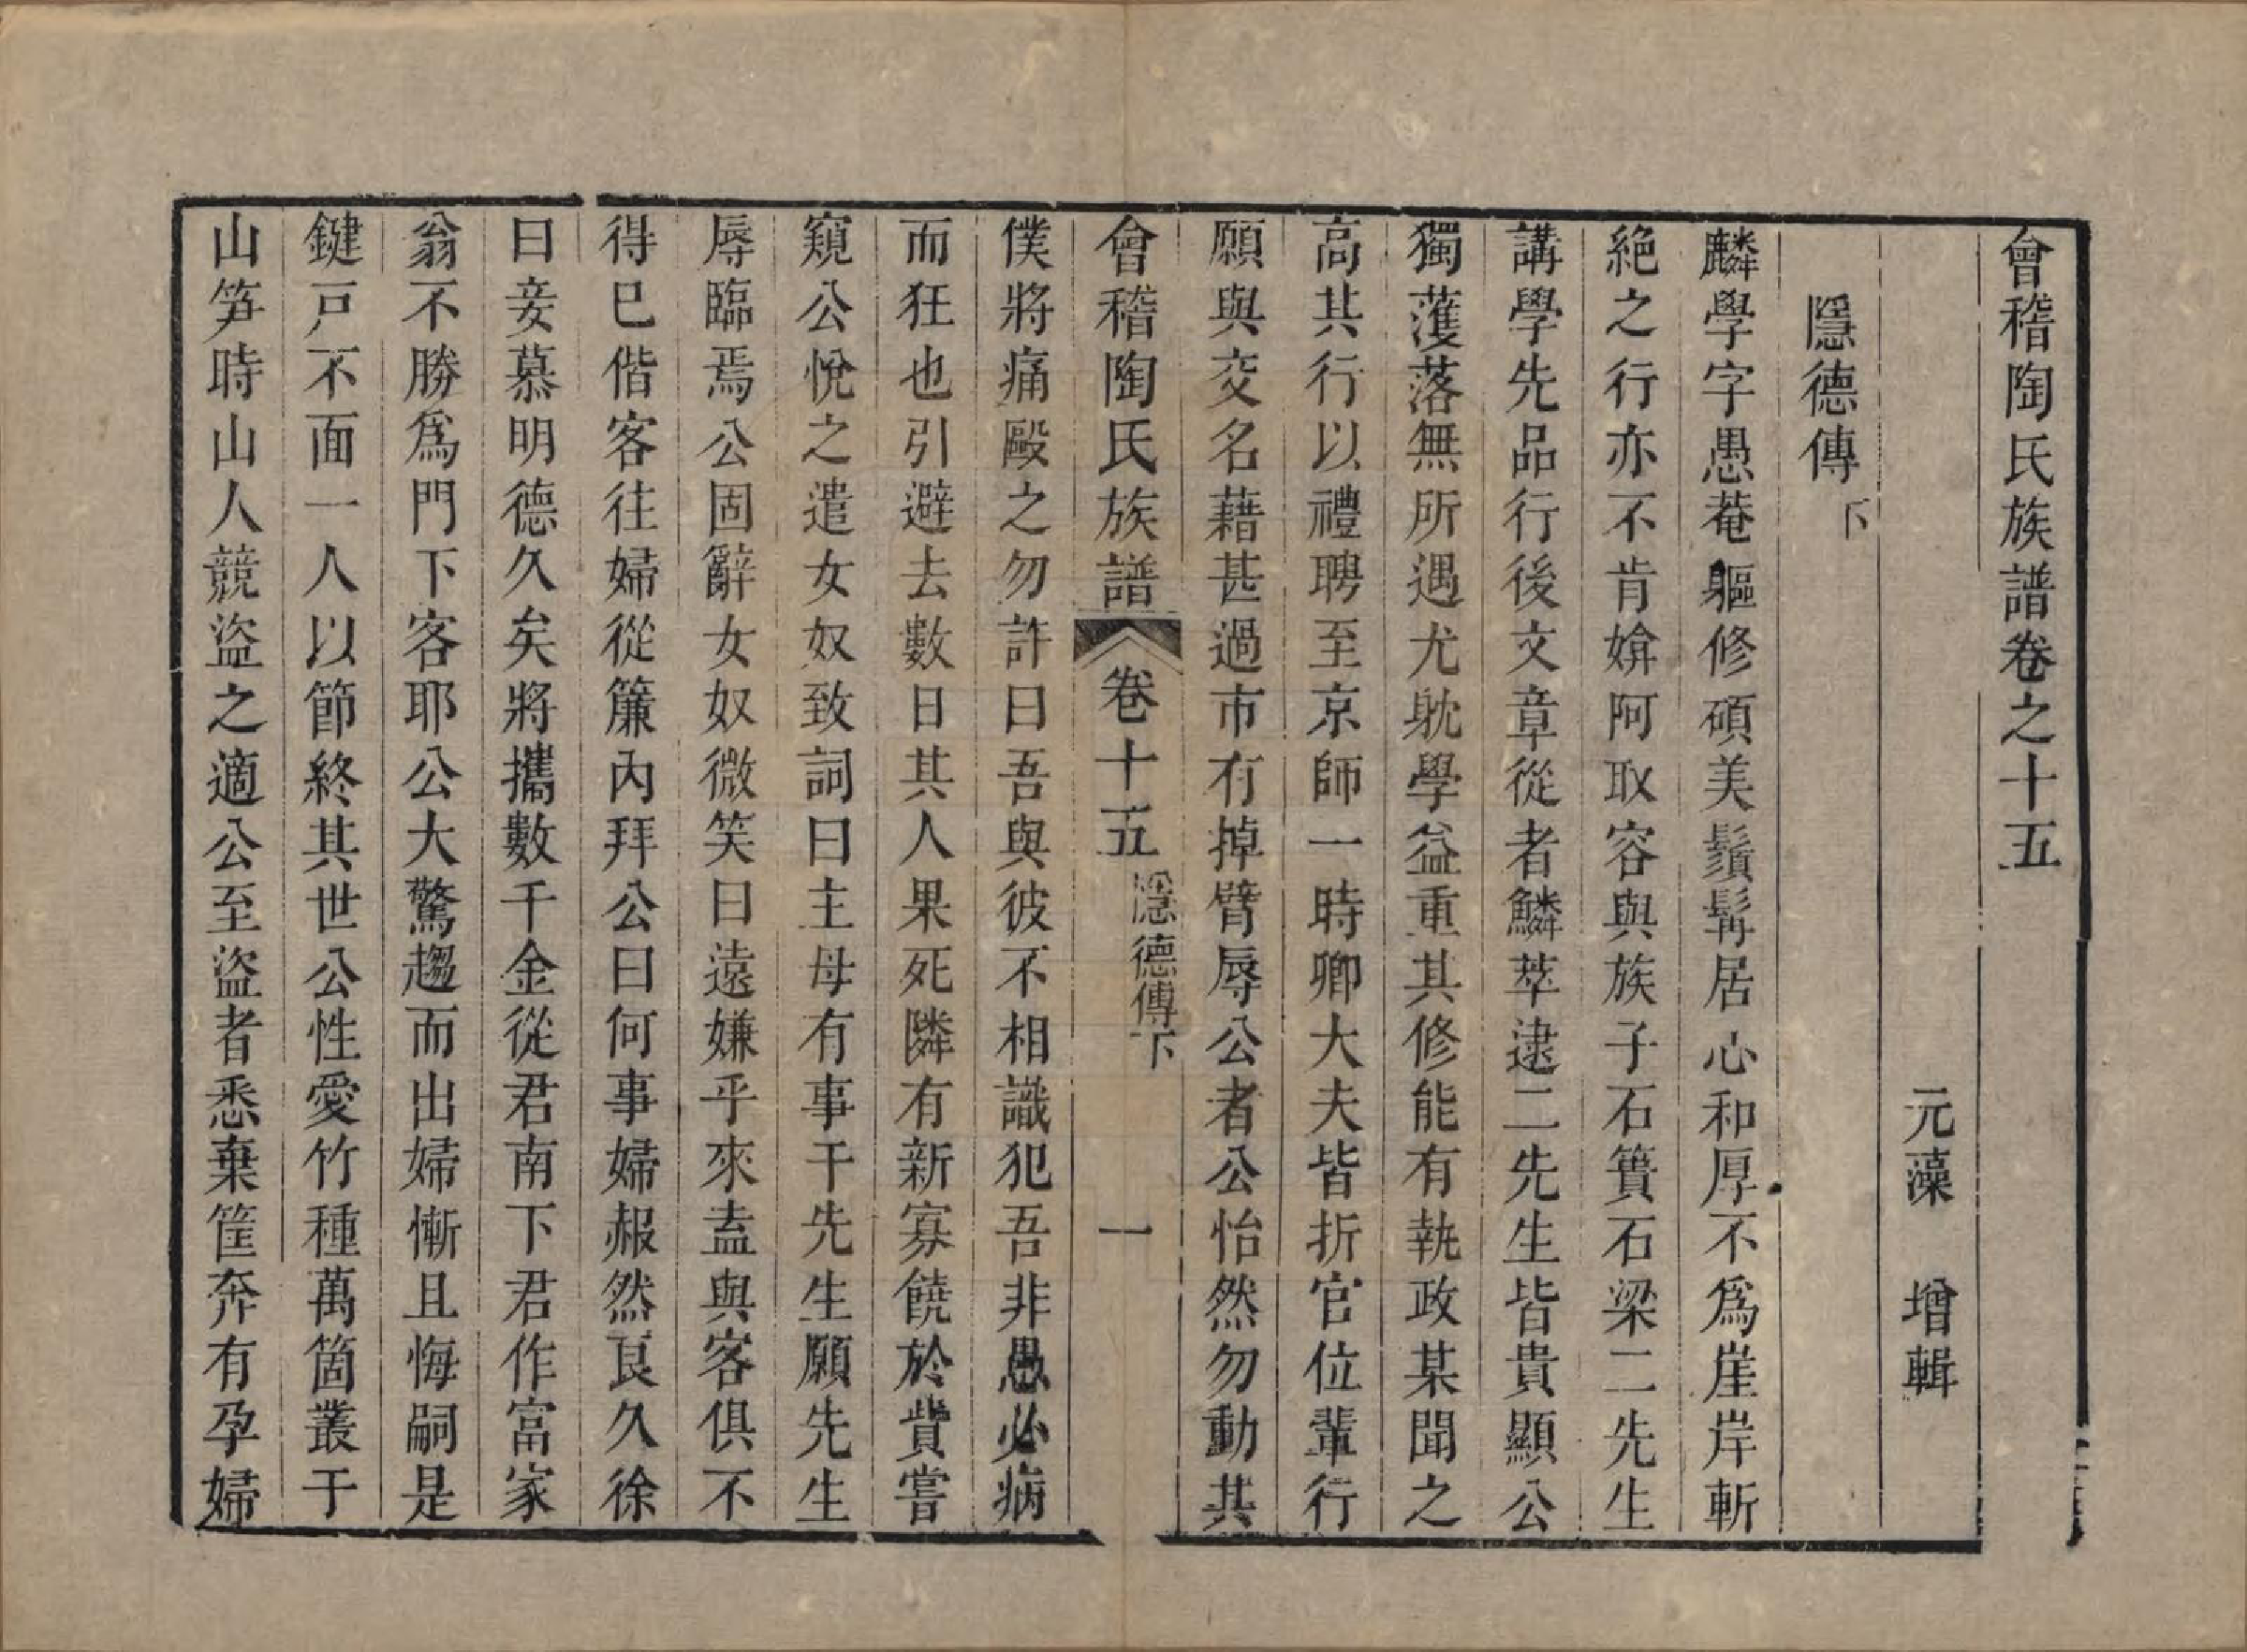 會稽陶氏族譜卷之十五
元藻　增輯
隱德傳下
麟學字愚菴軀修碩美鬚髯居心和厚不爲崖岸斬
絕之行亦不肯媕阿取容與族子石簣石梁二先生
講學先品行後文章從者鱗萃逮二先生皆貴顯公
獨濩落無所遇尤耽學益重其修能有執政某聞之
高其行以禮聘至京師一時卿大夫皆折官位輩行
願與交名藉甚過市有掉臂辱公者公怡然勿動其
會稽陶氏族譜　卷十五　隱德傳下　一
僕將痛毆之勿許曰吾與彼不相識犯吾非愚必病
而狂也引避去數日其人果死隣有新寡饒於貲嘗
窺公悅之遣女奴致詞曰主母有事干先生願先生
辱臨焉公固辭女奴微笑曰遠嫌乎來盍與客俱不
得已偕客往婦從簾內拜公曰何事婦赧然良久徐
曰妾慕明德久矣將攜數千金從君南下君作富家
翁不勝爲門下客耶公大驚趨而出婦慚且悔嗣是
鍵戸不面一人以節終其世公性愛竹種萬箇叢于
山笋時山人競盜之適公至盜者悉棄筐奔有孕婦